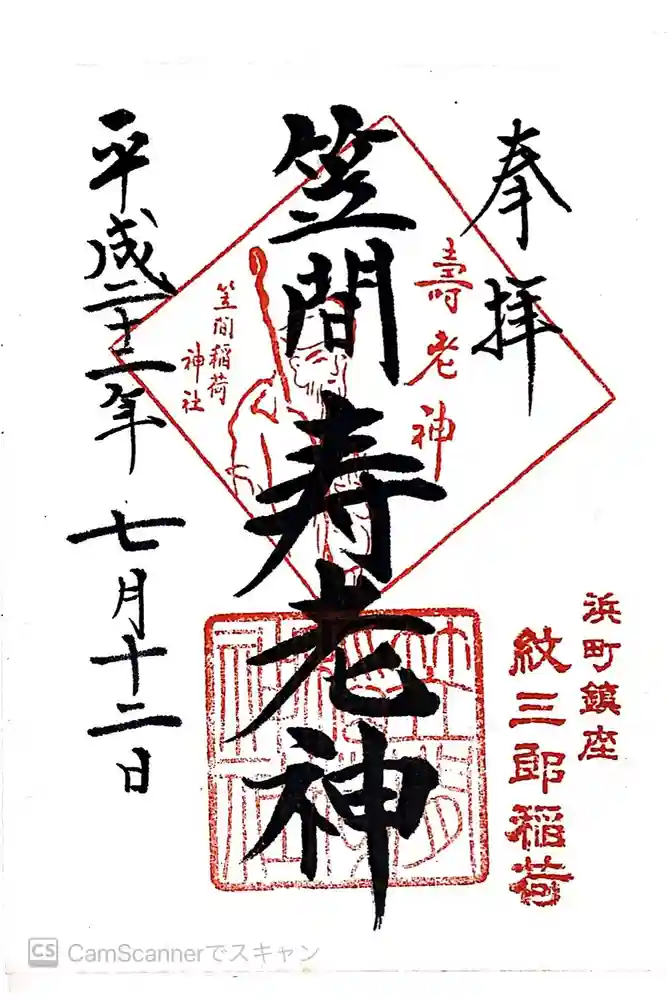 奉拝
壽老神
笠間稲荷
神社
笠間寿老神
平成二十二年 七月十二日
浜町鎮座
紋三郎稲荷
CS CamScannerでスキャン